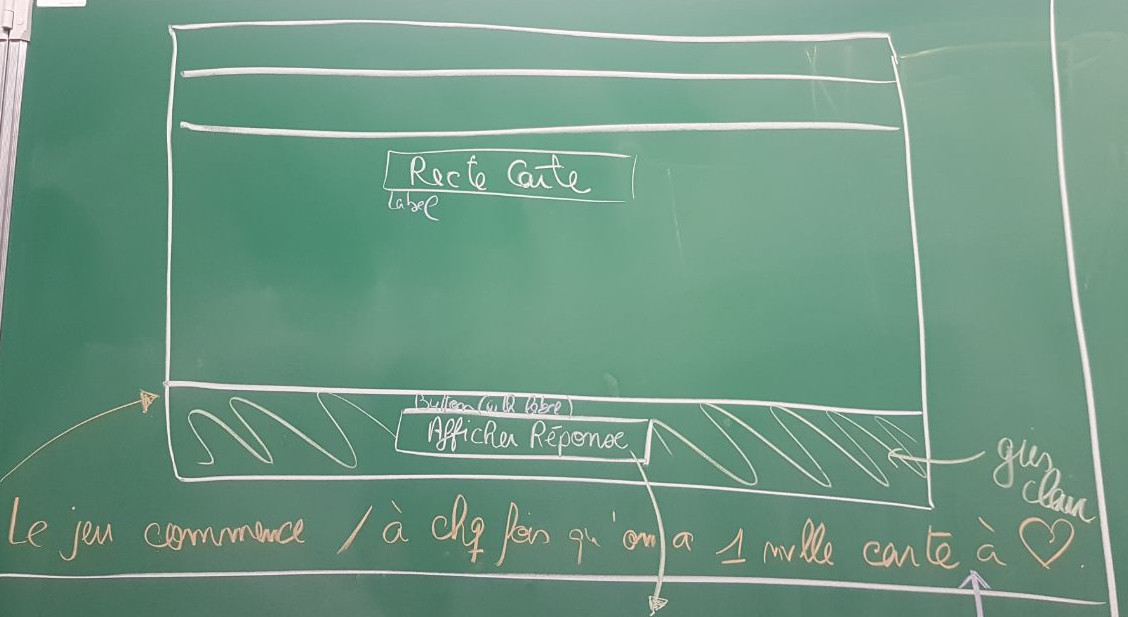 Recto Carte
Label
Button
Afficher Réponse
gris
clair
Le jeu commence / à chq fois qu'on a 1 nvlle carte à ♡.